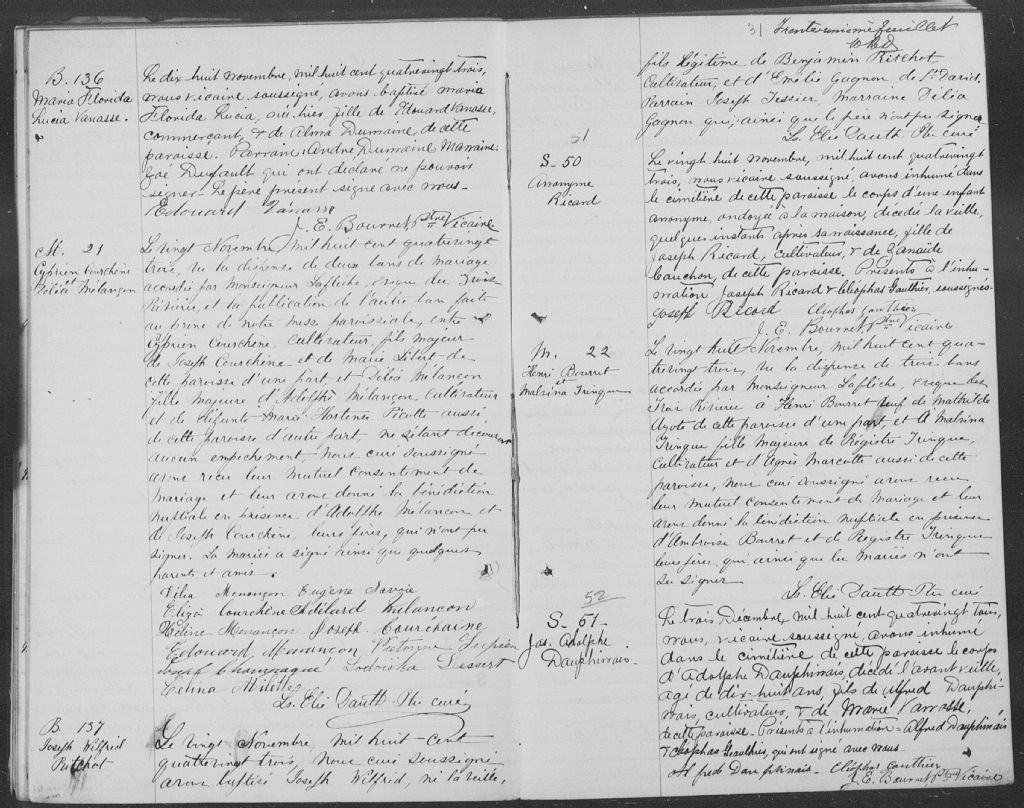 B. 136
Maria Florida
Lucia Vanasse.
Le dix huit novembre, mil huit cent quatrevingt trois,
nous vicaire soussigné, avons baptisé Maria
Florida Lucia, née hier, fille de Edouard Vanasse,
commerçant, & de Alma Dumaine, de cette
paroisse. Parrain: André Dumaine Marraine:
Zoé Dufault qui ont déclaré ne pouvoir
signer. Le père présent signe avec nous-
Edouard Vanasse
J. E. Bourret Ptre Vicaire
M. 21
Cyprien Courchène
et
Délia Mélançon
Le vingt Novembre, mil huit cent quatrevingt
trois, vu la dispense de deux bans de mariage
accordée par Monseigneur Lafléche, évêque des Trois
Rivière et la publication de l'autre ban faite
au prône de notre messe paroissiale, entre
Cyprien Courchène, Cultivateur, fils majeur
de Joseph Courchène et de Marie Libert de
cette paroisse d'une part, et Délia Mélançon
fille majeure d'Adolphe Mélançon, Cultivateur
et de défunte Marie Hortense Picotte aussi
de cette paroisse d'autre part, ne s'étant découvert
aucun empêchement, Nous curé soussigné
avons reçu leur mutuel consentement de
mariage et leur avons donné la bénédiction
nuptiale en présence d'Adolphe Mélançon et
de Joseph Courchène, leurs pères, qui n'ont pu
signer. La mariée a signé ainsi que quelques
parents et amis.
Délia Menançon Eugène Savoie
Eliza Courchène Adélard Melancon
Héline Menançon Joseph Courchaine
Edouard Menancon Victorine
Josep Champagne
Celina Milette
Ls. Elie Dauth Ptre curé
B. 137
Joseph Wilfrid
Ritchot
Le vingt Novembre, mil huit-cent
quatrevingt trois, Nous curé soussigné
avons baptisé Joseph Wilfrid, né la veille,
31 Trente-unième feuillet
fils légitime de Benjamin Ritchot
Cultivateur, et d'Emélie Gagnon de St David.
Parrain Joseph Tessier, Marraine Délia
Gagnon qui, ainsi que le père n'ont pu signer
Ls. Elie Dauth Ptre curé
51
S- 50
Anonyme
Ricard
Le vingt huit novembre, mil huit cent quatrevingt
trois, nous vicaire soussigné, avons inhumé dans
le cimetière de cette paroisse le corps d'une enfant
anonyme, ondoyé à la maison, décédée la veille,
quelques instants après sa naissance, fille de
Joseph Ricard, cultivateur, & de Zanaïde
Cauchon, de cette paroisse. Présents à l'inhu-
mation Joseph Ricard & Cléophas Gauthier, soussignés-
Joseph Ricard Cléophas Gauthier
J. E. Bourret Ptre Vicaire
M. 22
Henri Bourret
et
Malvina Tringue
Le vingt huit Novembre, mil huit cent qua-
trevingt trois, vu la dispense de trois bans
accordée par Monseigneur Lafléche, évêque des
Trois Rivière à Henri Bourret veuf de Mathilde
Ayote de cette paroisse d'un part, et à Malvina
Tringue fille majeure de Régistre Tringue,
Cultivateur et d'Agnès Marcotte aussi de cette
paroisse, nous curé soussigné avons reçu
leur mutuel consentement de Mariage et leur
avons donné la bénédiction nuptiale en présence
d'Ambroise Bourret et de Régistre Tringue
leurs pères, qui ainsi que les mariés n'ont
su signer
Ls. Elie Dauth Ptre curé
52
S- 51-
Jos. Adolphe
Dauphinais-
Le trois Décembre, mil huit cent quatrevingt trois,
nous, vicaire soussigné, avons inhumé
dans le cimetière de cette paroisse le corps
d'Adolphe Dauphinais, décédé l'avant veille,
agé de dix-huit ans, fils de Alfred Dauphi-
nais, cultivateur, & de Marie Vanasse,
de cette paroisse. Présents à l'inhumation - Alfred Dauphinais
& Cléophas Gauthier, qui ont signé avec nous.
Alfred Dauphinais - Cléophas Gauthier
J. E. Bourret Ptre Vicaire